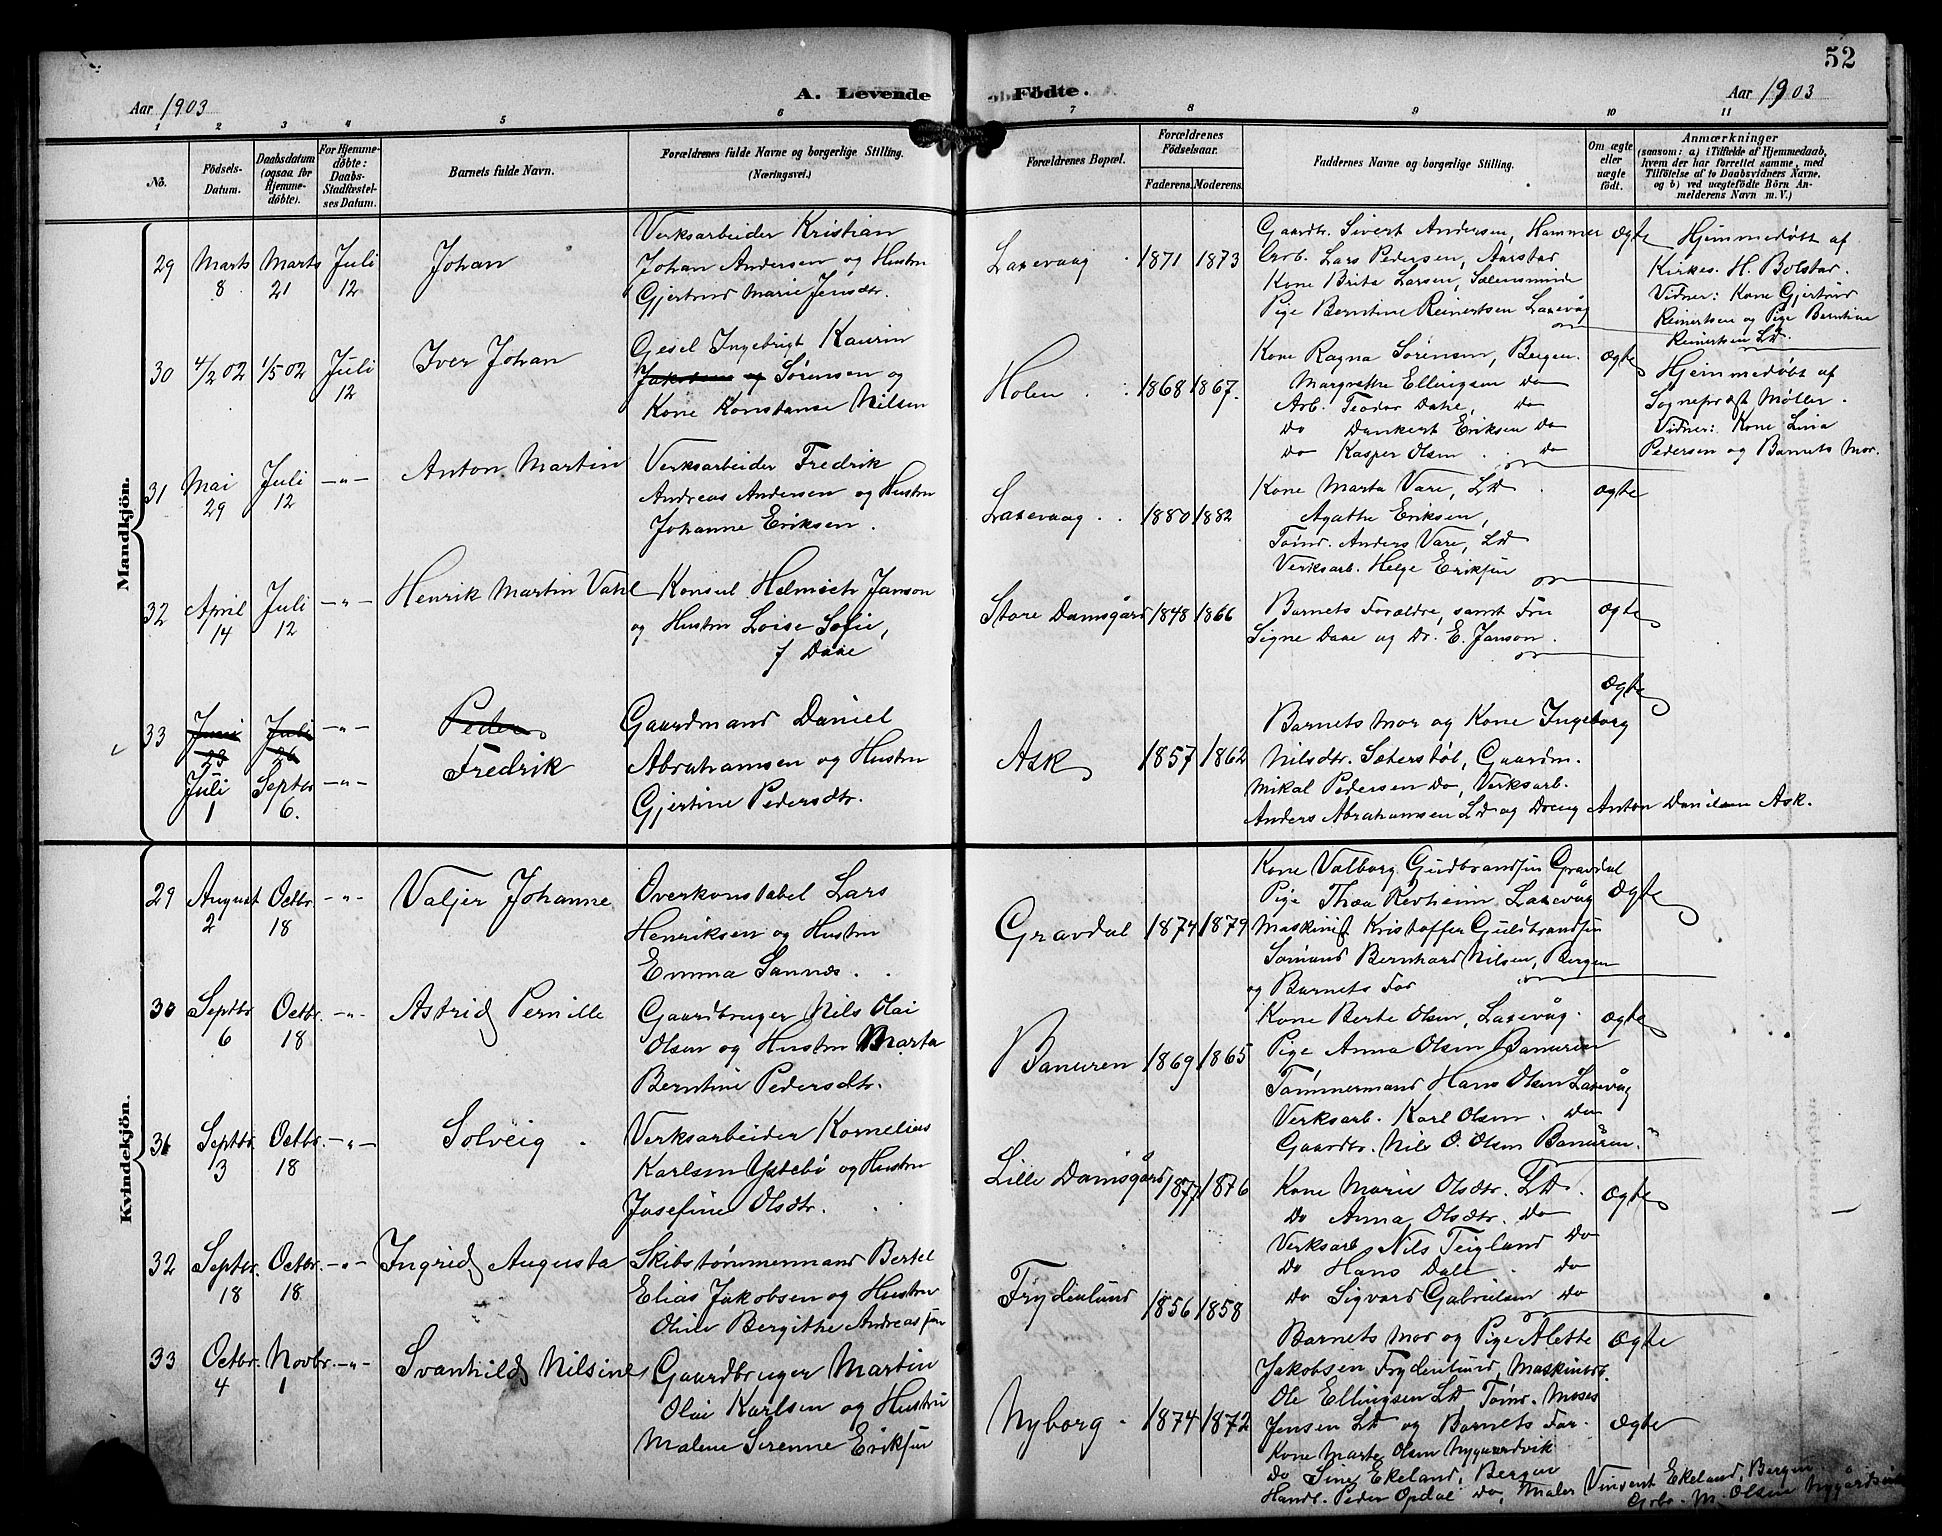 52
Aar 1903
A. Levende Födte.
Aar 1903
1 2 3 4 5 6 7 8 9 10 11
No.
Födsels-Datum.
Daabsdatum (ogsaa for Hjemme-döbte).
For Hjemme-döbte: Daabs-Stadfæstel-ses Datum.
Barnets fulde Navn.
Forældrenes fulde Navne og borgerlige Stilling.
(Næringsvei.)
Forældrenes Bopæl.
Forældrenes Födselsaar.
Faderens. Moderens.
Faddernes Navne og borgerlige Stilling.
Om ægte eller uægte födt.
Anmærkninger
(saasom: a) i Tilfælde af Hjemmedaab,
hvem der har forrettet samme, med
Tilföielse af to Daabsvidners Navne.
og b) ved uægtefödte Börn An-
melderens Navn m. V.)
Mandkjön.
29 Marts 8 Marts 21 Juli 12 Johan
Verksarbeider Kristian
Johan Andersen og Hustru
Gjertrud Marie Jensdtr.
Laxevaag 1871 1873
Gaardbr. Sivert Andersen, Hammer
Arb. Lars Pedersen, Aarstad
Kone Brita Larsen, Salensminde
Pige Berntine Reinertsen Laxevåg
ægte
Hjemmedøbt af
Kirkes. H. Bolstad.
Vidner: Kone Gjertrud
Reinertsen og Pige Berntine
Reinertsen Ld.
30 4/2 02 1/5 02 Juli 12 Iver Johan
Gesel Ingebrigt Kaurin
Jakobsen og Sørensen og
Kone Konstanse Nilsen
Holen 1868 1867.
Kone Ragna Sørensen, Bergen.
Margrethe Ellingsen do
Arb. Teodor Dahe, do
do Dankert Eriksen do
do Kasper Olsen do
ægte
Hjemmedøbt af
Sognepræst Møller.
Vidner: Kone Lina
Pedersen og Barnets Mor.
31 Mai 29 Juli 12 -"- Anton Martin
Verksarbeider Fredrik
Andreas Andersen og Hustru
Johanne Eriksen.
Laxevaag. 1880 1882
Kone Marta Vare, Ld
Agathe Eriksen,
Tømd. Anders Vare, Ld
Verksarb. Helge Eriksen
ægte
32 April 14 Juli 12 -"- Henrik Martin Vahl
Konsul Helmich Janson
og Hustru Loise Sofie,
f Daae
Store Damsgård 1848 1866
Barnets Forældre, samt Fru
Signe Daae og Dr. E. Janson.
ægte
33 Juni 23 Juli 26 -"- Peder
Juli 1 Septbr 6. -"- Fredrik
Gaardmand Daniel
Abrahamsen og Hustru
Gjertine Pedersdtr.
Ask 1857 1862
Barnets Mor og Kone Ingeborg
Nilsdtr. Sæterstøl, Gaardm.
Mikal Pedersen do, Verksarb.
Anders Abrahamsen Ld og Dreng Anton Danielsen Ask.
ægte
Kvindekjön.
29 August 2 Octbr. 18 -"- Valjer Johanne
Overkonstabel Lars
Henriksen og Hustru
Emma Sannes.
Gravdal 1874 1879
Kone Valborg Gudbrandsen Gravdal
Pige Thea Revheim Laxevåg
Maskinist Kristoffer Guldbrandsen
Sømand Bernhard Nilsen, Bergen
og Barnets Far
ægte
30 Septbr. 6 Octbr. 18 -"- Astrid Pernille
Gaardbruger Nils Olai
Olsen og Hustru Marta
Berntine Pedersdtr.
Banuren 1869 1865
Kone Berte Olsen, Laxevåg.
Pige Anna Olsen Banuren
Tømmermand Hans Olsen Laxevåg
Verksarb. Karl Olsen. do
Gaardbr. Nils O. Olsen Banuren.
ægte
31 Septbr. 3 Octbr. 18 -"- Solveig
Verksarbeider Kornelius
Karlsen Ystebø og Hustru
Josefine Olsdtr.
Lille Damsgård 1877 1876
Kone Marie Olsdtr. Ld.
Do Anna Olsdtr. do
Verksarb. Nils Teigland do
Do Hans Dale do
Do Sigvard Gabrielsen do
ægte
32 Septbr. 18 Octbr. 18 -"- Ingrid Augusta
Skibstømmermand Bertel
Elias Jakobsen og Hustru
Olive Bergithe Andreassen
Frydenlund 1856 1858
Barnets Mor og Pige Alette
Jakobsen Frydenlund, Maskinarb.
Ole Ellingsen Ld Tømr. Moses
Jensen Ld og Barnets Far.
ægte
33 Octbr. 4 Novbr. 1 -"- Svanhild Nilsine
Gaardbruger Martin
Olai Karlsen og Hustru
Malene Serenne Eriksen
Nyborg 1874 1872
Kone Marte Olsen Nygaardvik
Do Sine Ekeland, Bergen
Handb. Peder Opdal do, Maler Vincent Ekeland, Bergen
Grbr. M. Olsen Nygårdsvik
ægte